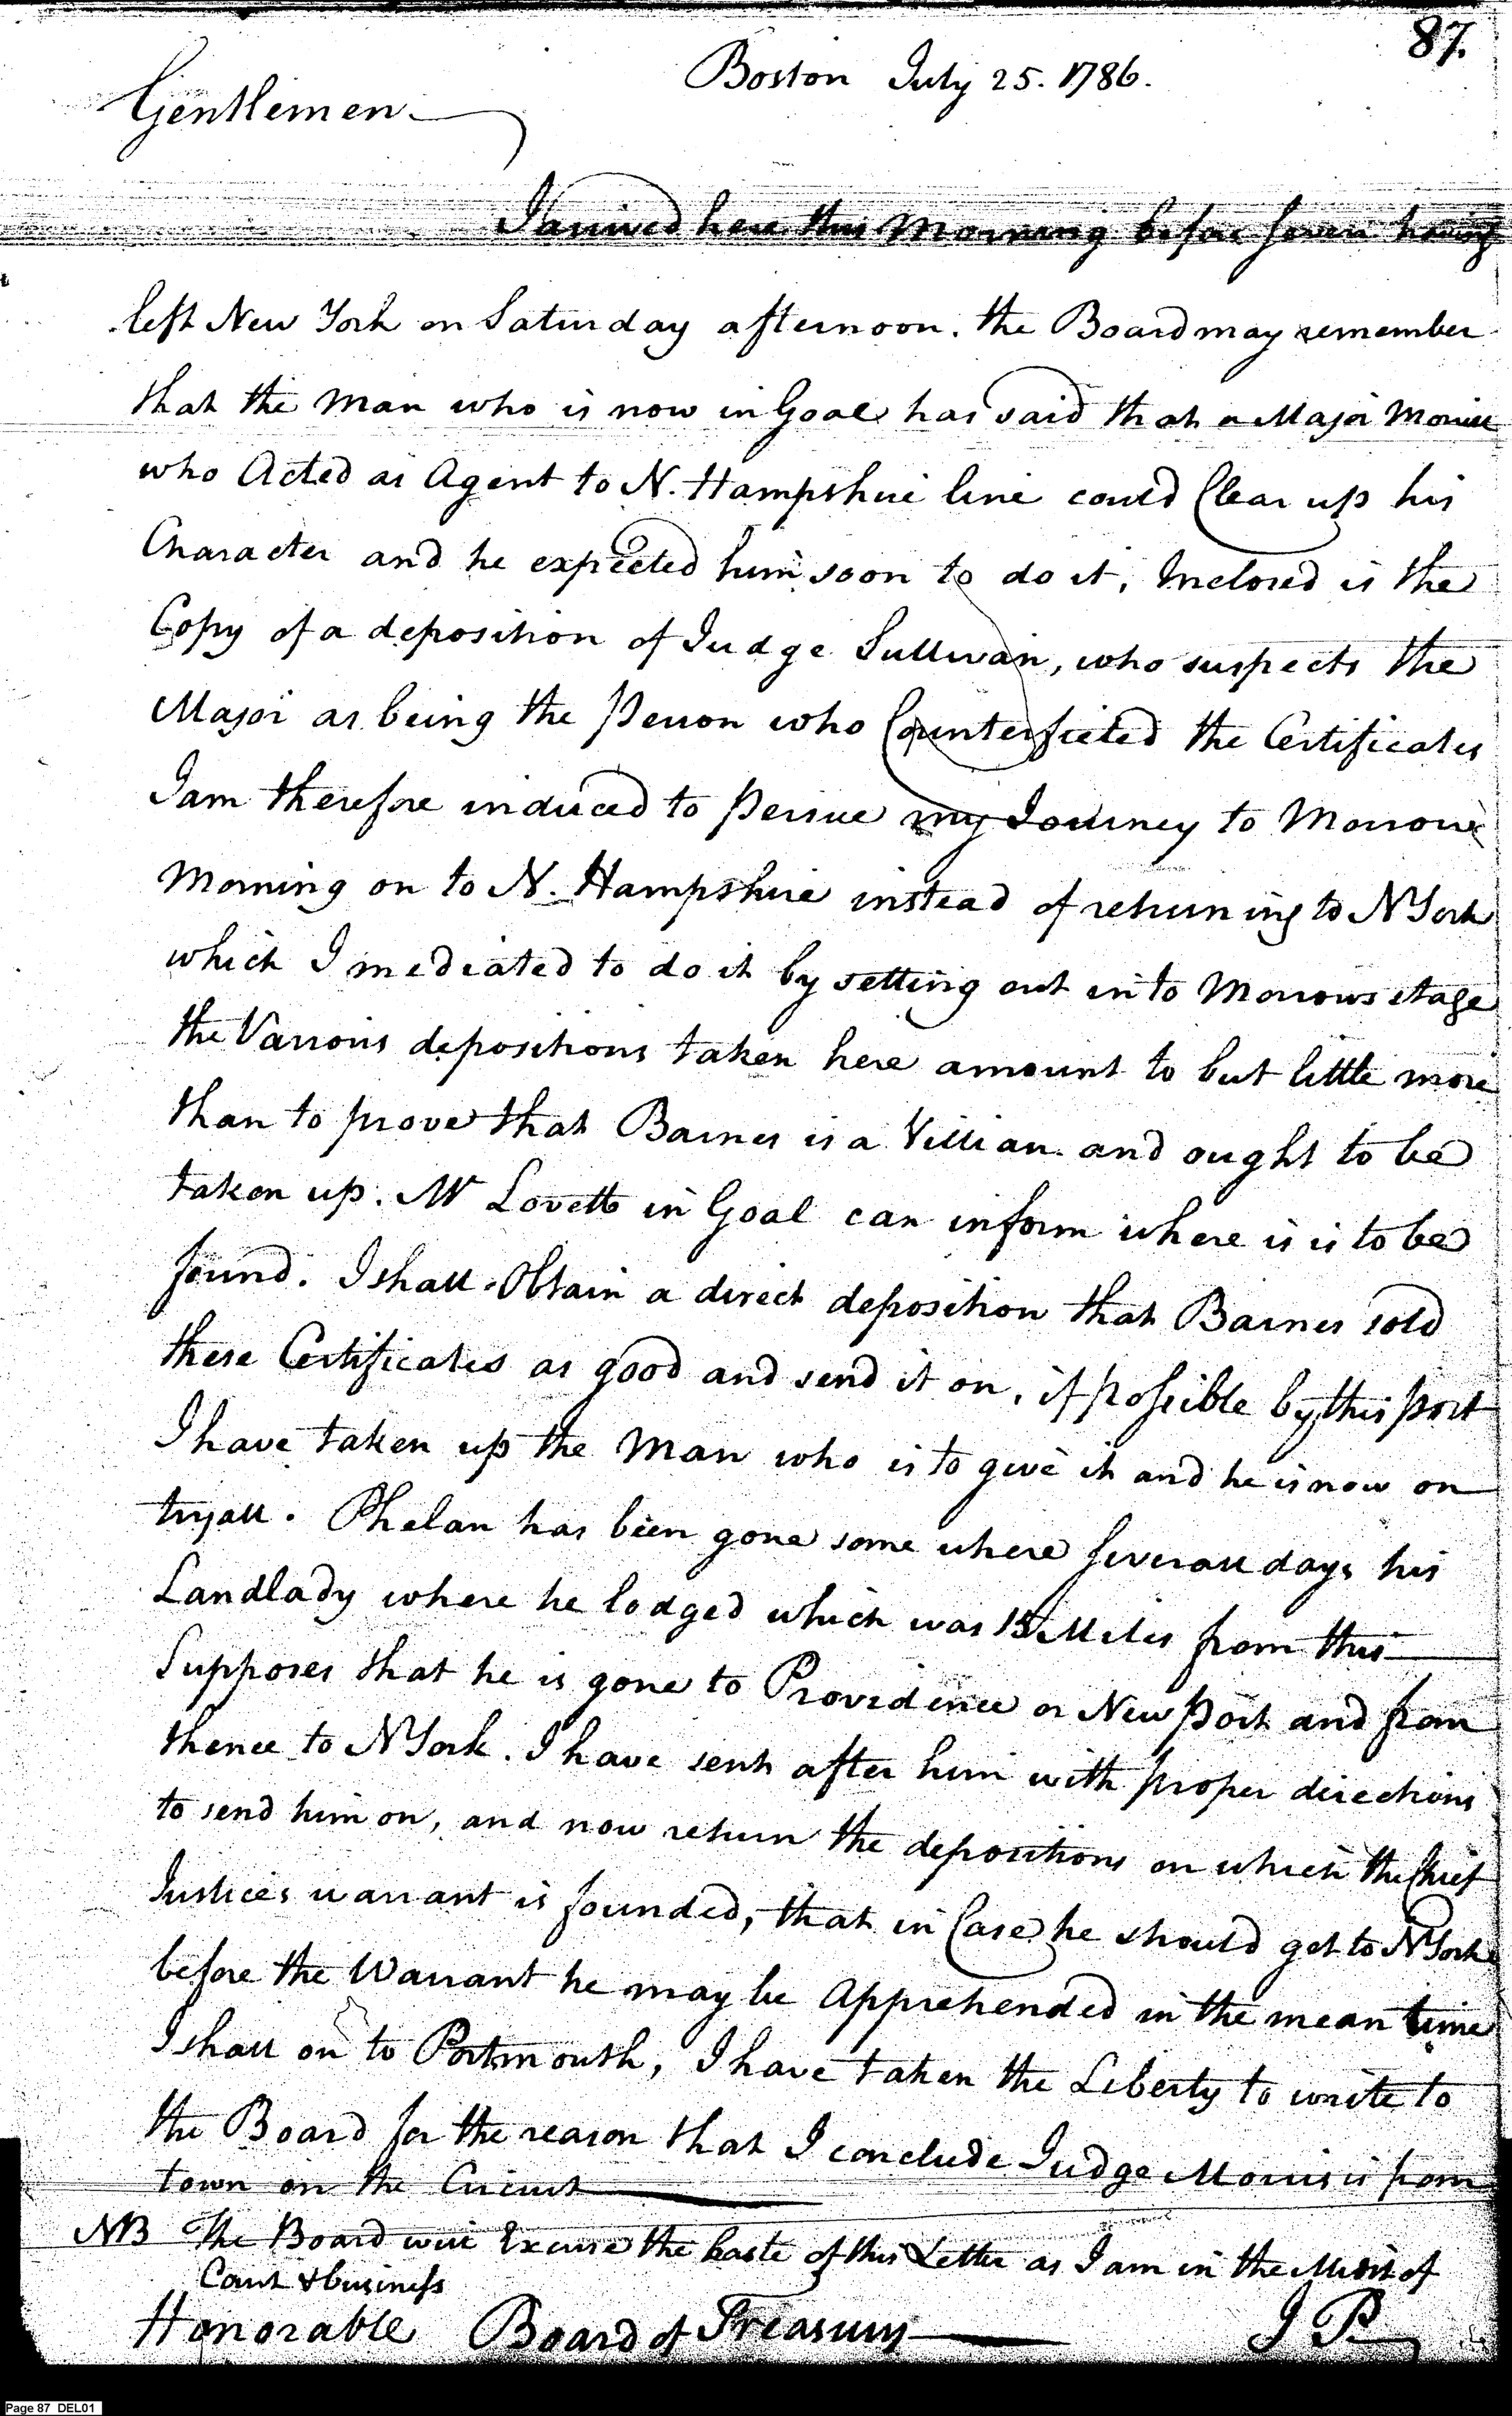 87.
Boston July 25. 1786.
Gentlemen
I arrived here this Morning before seven having
left New York on Saturday afternoon. the Board may remember
that the Man who is now in Goal has said that a Major
who Acted as Agent to N. Hampshire line could Clear up his
Character and he expected him soon to do it, Inclosed is the
Copy of a deposition of Judge Sullivan, who suspects the
Major as being the Person who Counterfieted the Certificates
I am therefore induced to Persue my Journey to Morrow
Morning on to N. Hampshire instead of returning to N York
which I mediated to do it by setting out in to Morrows stage
the Varrious depositions taken here amount to but little more
than to prove that Barnes is a Villian and ought to be
taken up. Mr Lovett in Goal can inform where is is to be
found. I shall Obtain a direct deposition that Barnes sold
these Certificates as good and send it on, if possible by this post
I have taken up the Man who is to give it and he is now on
tryall. Phelan has been gone some where severall days his
Landlady where he lodged which was 15 Miles from this
Supposes that he is gone to Providence or New Port and from
thence to N York. I have sent after him with proper directions
to send him on, and now return the depositions on which the Chief
Justices warrant is founded, that in Case he should get to N York
before the Warrant he may be Apprehended in the mean time
I shall on to Portsmouth, I have taken the Liberty to write to
the Board for the reason that I conclude Judge Morris is from
town on the Circuit
NB The Board will Excuse the haste of this Letter as I am in the Midst of
Court & business
Honorable Board of Treasury J P
Page 87 DEL01